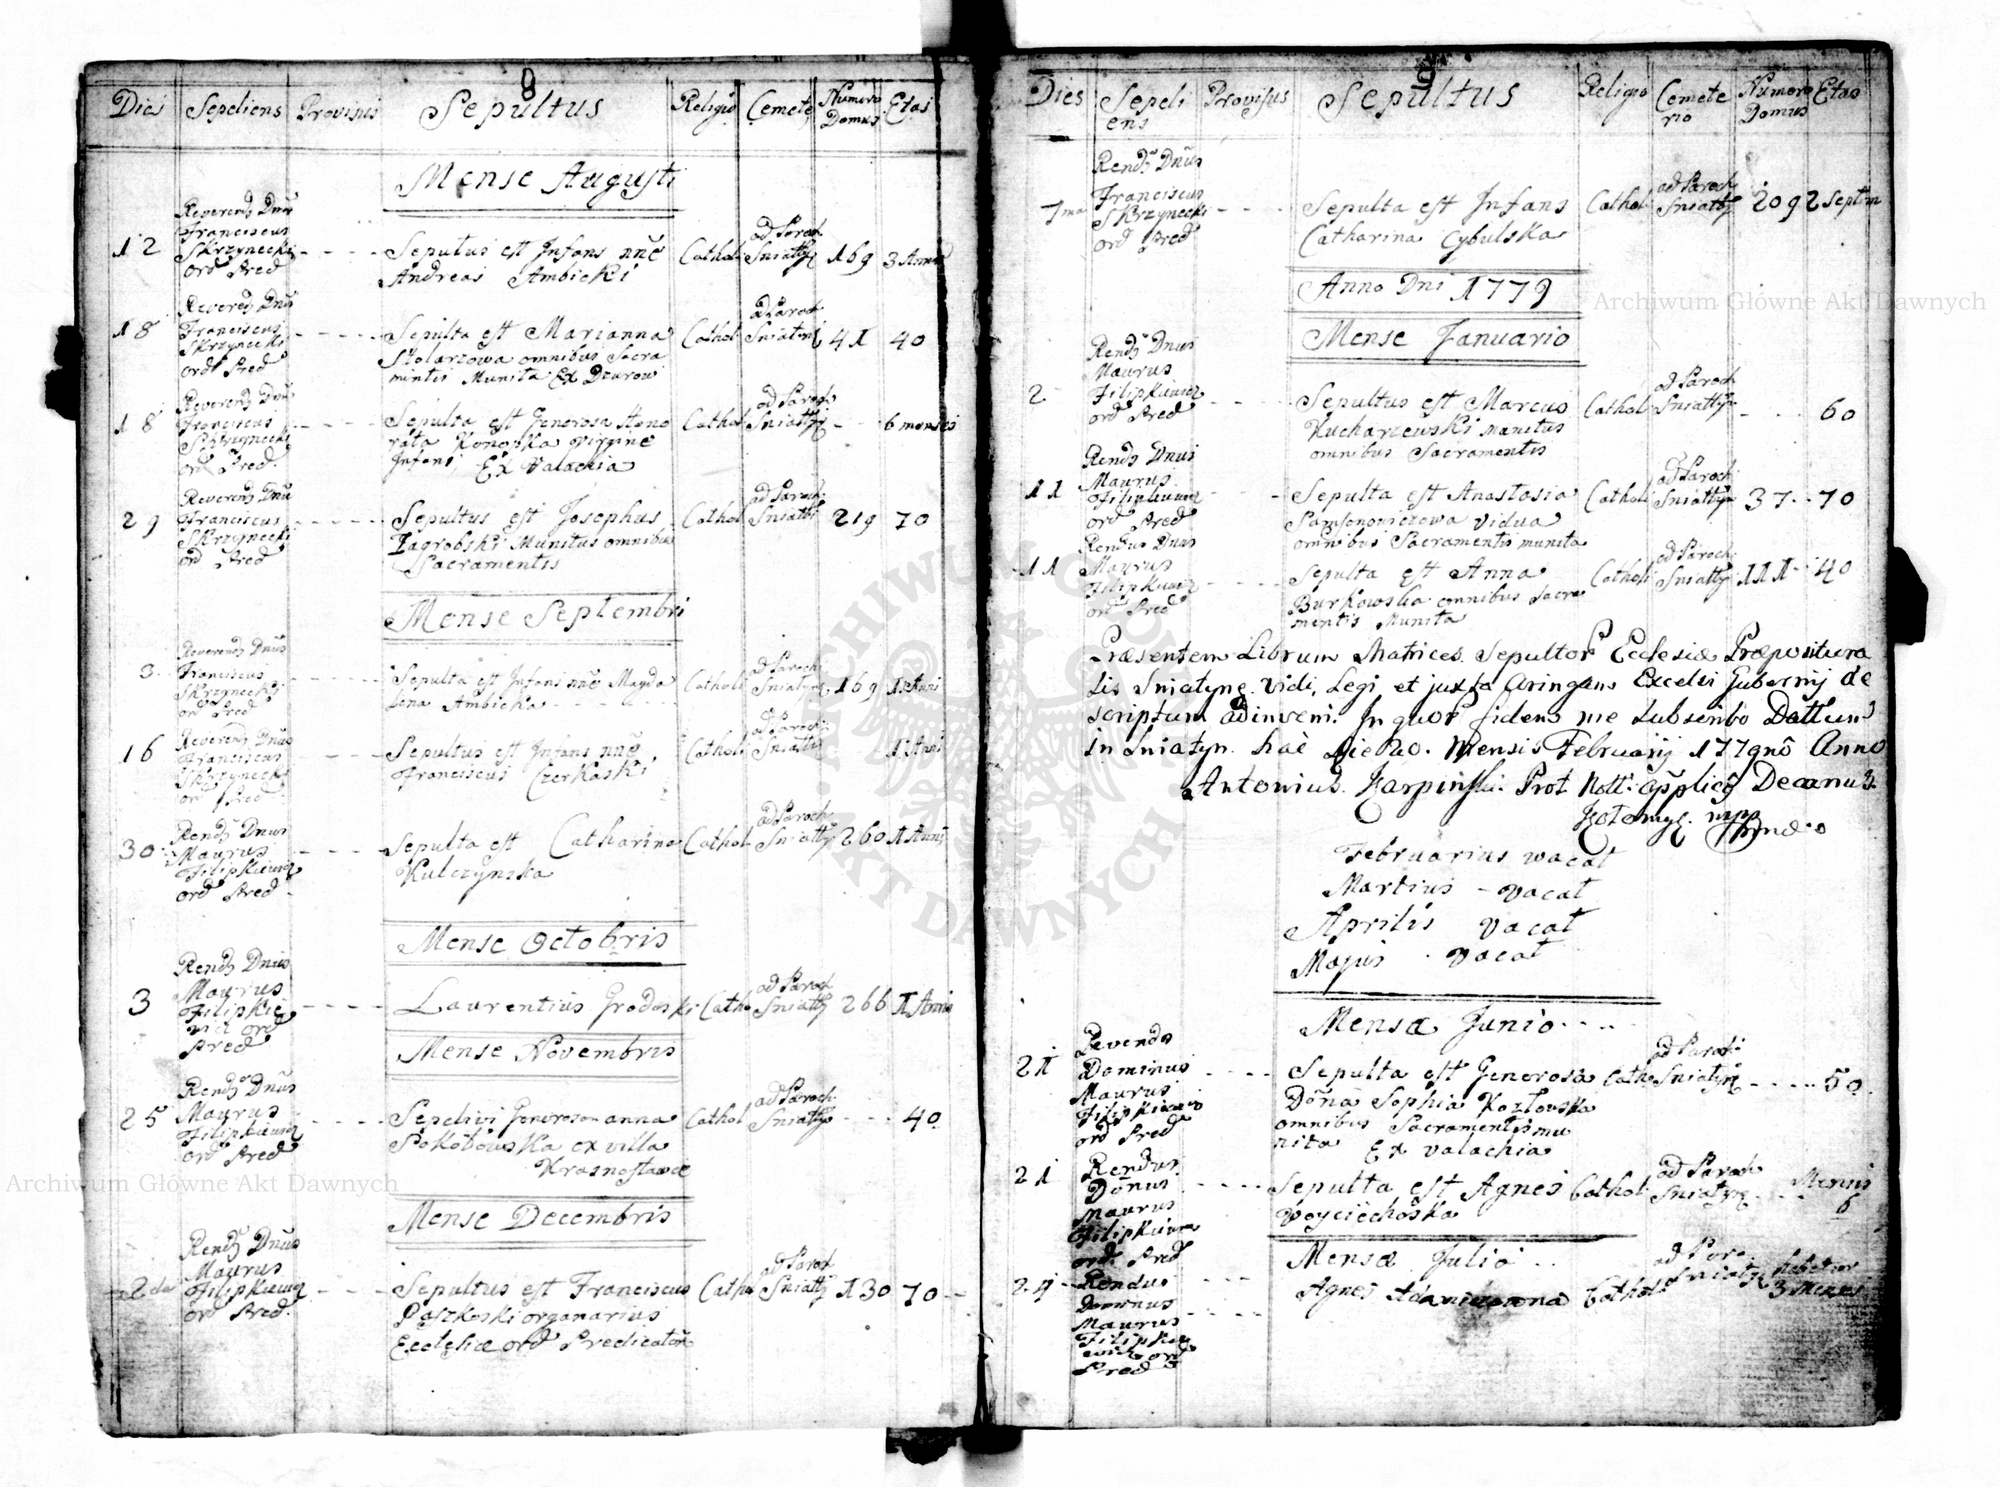 8
Dies Sepeliens Provisus Sepultus Religio Cemete Numero Domus Etas
Mense Augusti
12 Reverend Dnus Franciscus Skrzynecki ord Pred
Sepultus est Infans nne
Andreas Ambicki
Cathol ad Paroch Sniatÿ 169 3 Anni
18 Reverend Dnus Franciscus Skrzynecki ord Pred
Sepulta est Marianna
Stolarzowa omnibus Sacra
mintis Munita Ex Dzurow
Cathol ad Paroch Sniatyn 41 40
18 Reverend Dnus Franciscus Skrzynecki ord Pred
Sepulta est Generosa Hono
rata Konopka virgine
Infans, Ex Valachia
Cathol ad Paroch Sniattÿ 6 menses
29 Reverend Dnus Franciscus Skrzynecki ord Pred
Sepultus est Josephus
Zagrobski Munitus omnibus
Sacramentis
Cathol ad Paroch Sniatty 219 70
Mense Septembri
3 Reverend Dnus Franciscus Skrzynecki ord Pred
Sepulta est Infans nne Magda
lena Ambicka
Catholi ad Paroch Sniatyn 169 1 Anni
16 Reverend Dnus Franciscus Skrzynecki ord Pred
Sepultus est Infans nne
Franciscus Czerkaski
Catholi ad Paroch Sniatty 1 Anni
30 Rend Dnus Maurus Filipkiewicz ord Pred
Sepulta est Catharina
Kulczynska
Cathol ad Paroch Sniatty 260 1 Anni
Mense Octobris
3 Rend Dnus Maurus Filipkie
vicz ord Pred
Laurentius Grodoski Catho ad Paroch Sniatty 266 1 Anni
Mense Novembris
25 Rend Dnus Maurus Filipkiewicz ord Pred
Sepelivi Generosam anna
Sokolowska ex villa
Krasnostawce
Cathol ad Paroch Sniattyn 40
Mense Decembris
2da Rend Dnus Maurus Filipkiewicz ord Pred
Sepultus est Franciscus
Paszkoski organarius
Ecclesiæ ord Predicator
Catho ad Paroch Sniatty 130 70
9
Dies Sepeli
ens Provisus Sepultus Religio Cemete
rio Numero Domus Etas
7ma Rend Dnus Franciscus Skrzynecki ord Pred
Sepulta est Infans
Catharina Cybulska
Cathol ad Paroch Sniatty 209 2 Septim
Anno Dni 1779
Mense Januario
2 Rend Dnus Maurus Filipkiewicz ord Pred
Sepultus est Marcus
Kucharzewski Munitus
omnibus Sacramentis
Cathol ad Paroch Sniattyn 60
11 Rend Dnus Maurus Filipkiewicz ord Pred
Sepulta est Anastasia
Samsonowiczowa Vidua
omnibus Sacramentis munita
Catholi ad Paroch Sniattyn 37 70
11 Rendus Dnus Maurus Filipkiewicz ord Pred
Sepulta est Anna
Burkowska omnibus Sacra
mentis Munita
Catholi ad Paroch Sniatty 111 40
Præsentem Librum Matrices Sepultor Ecclesiæ Præpositura
lis Sniatynę Vidi, Legi et juxta Excelsi Gubernij de
scriptum adinveni. In quor fidem me subscribo Dattum
in Sniatyn hac Die 20. Mensis Februarij 1779no Anno
Antonius Karpinski Prot Nott: Applicg Decanus
mpp
Februarius wacat
Martius - vacat
Aprilis vacat
Majus vacat
Mensæ Junio
21 Revends Dominus Maurus Filipkiewicz ord Pred
Sepulta est Generosa
Dona Sophia Kozlowska
omnibus Sacramentis mu
nita Ex Valachia
Catho ad Parochi Sniatyn 50
21 Rendus Donus Maurus Filipkiewicz ord. Pred
Sepulta est Agnes
Woyciechoska
Cathol ad Paroch Sniatyn Mensis 6
Mensæ Julio
24 Rendus Dominus Maurus Filipkie
wicz ord Pred
Agnes
Cathol ad Paro Sniatyn 3 Menses
Archiwum Główne Akt Dawnych
Archiwum Główne Akt Dawnych
ARCHIWUM GŁÓWNE AKT DAWNYCH